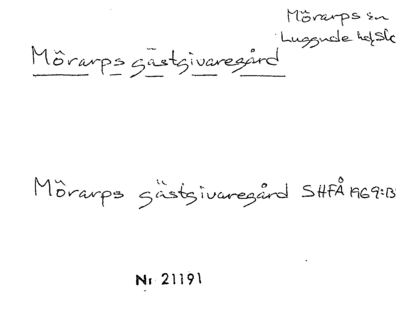 Mörarps sn
Luggude hd, Sk
Mörarps gästgivaregård
Mörarps gästgivaregård SHFÅ 1969:B
Nr 21191